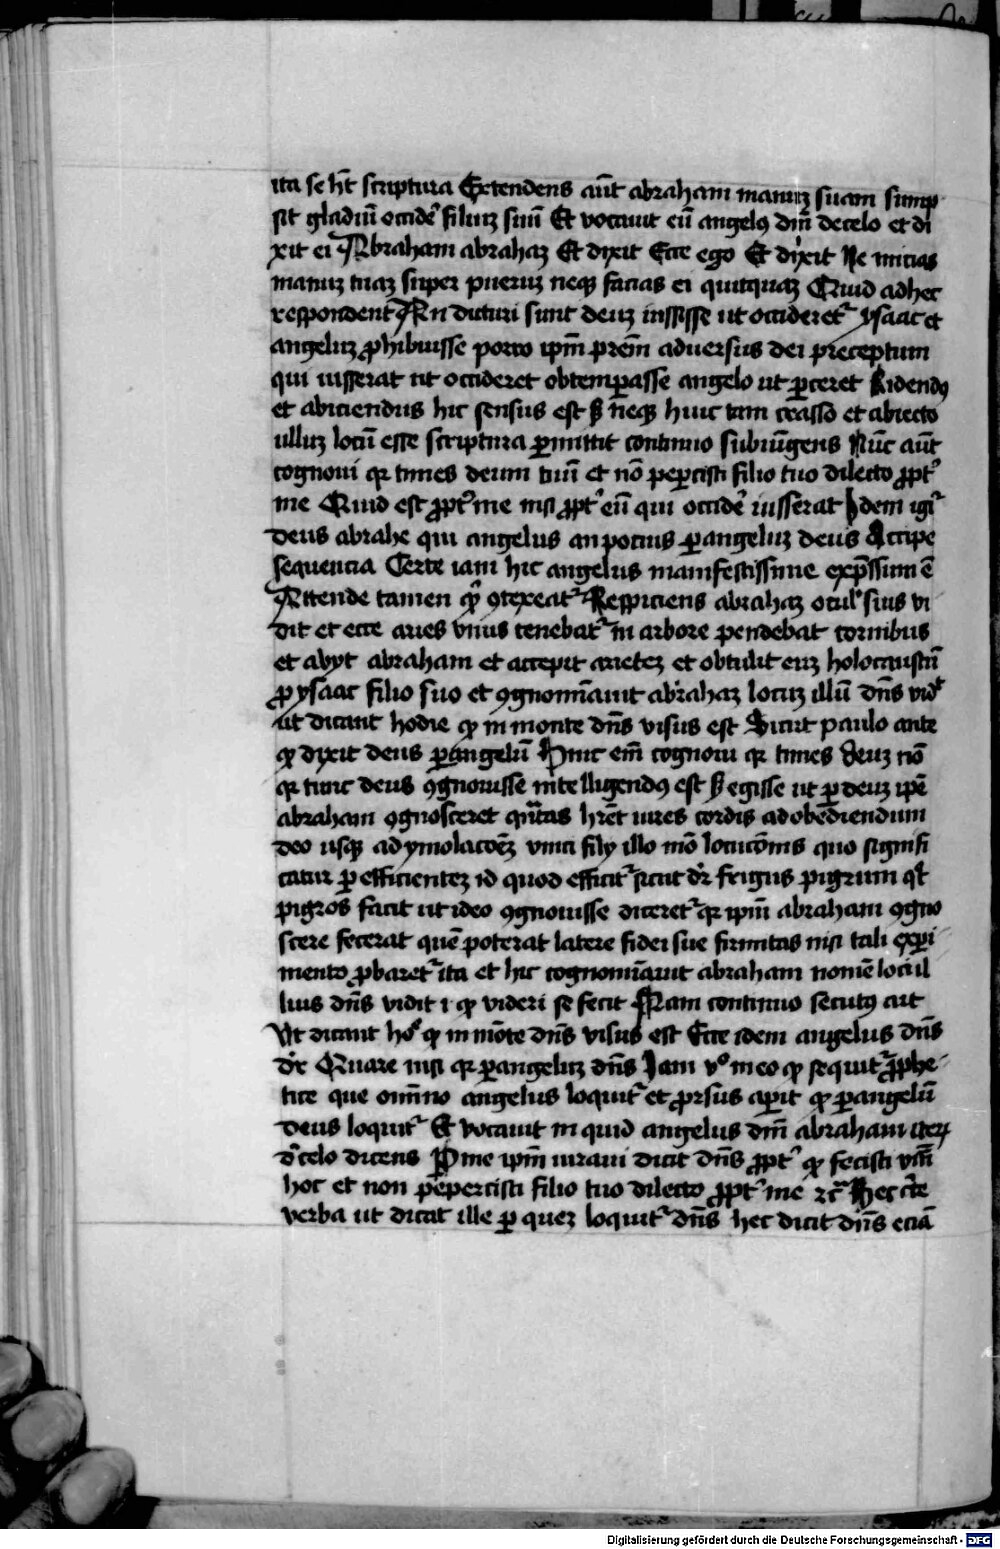 ita se ht̄ scriptura Extendens aūt abraham manuʒ suam sump
sit gladiū occidē filiuʒ suū Et vocauit eū angelꝰ dm̄ decelo et di
xit ei Abraham abrahaʒ Et dixit Ecce ego Et dixit Ne inicias
manuʒ tuaʒ super pueruʒ neqꝫ facias ei quitquaʒ Quid adhec
respondent An dicturi sunt deuʒ iussisse ut occideret᷑ ysaac et
angeluʒ ꝓhibuisse porro ipm̄ prem̄ aduersus dei preceptum
qui iusserat ut occideret obtemꝑasse angelo ut ꝑceret Ridendꝰ
et abiciendus hic sensus est sꝫ neqꝫ huic tam crasso et abiecto
ulluʒ locū esse scriptura ꝑmittit continuo subiūgens Nūc aūt
cognoui qr times deum tuū et nō peꝑcisti filio tuo dilecto ꝓpt᷑
me Quid est ꝓpt᷑ me nisi ꝓpt᷑ eū qui occidē iusserat Idem igr̄
deus abrahe qui angelus an pocius ꝑ angeluʒ deus Accipe
sequencia Certe iam hic angelus manifestissime exp̄ssum ē
Attende tamen qͥ ꝯtexeat᷑ Respiciens abrahaʒ oculꝭ suis vi
dit et ecce aries vnus tenebat᷑ in arbore pendebat cornibus
et abyt abraham et accepit arieteʒ et obtulit euʒ holocaustū
ꝓ ysaac filio suo et ꝯgnomīauit abrahaʒ locuʒ illū dn̄s vidꝫ
ut dicant hodie ꝙ in monte dn̄s visus est Sicut paulo ante
ꝙ dixit deus ꝑ angelū Nunc em̄ cognoui qr times deuʒ nō
qr tunc deus ꝯgnouisse intelligendꝰ est sꝫ egisse ut ꝑ deuʒ ipē
abraham ꝯgnosceret qn̄tas hrēt uires cordis ad obediendum
deo usqꝫ ad ymolacōeʒ vnici fily illo mō locucōnis quo signifi
catur ꝑ efficienteʒ id quod efficit᷑ sicut dr̄ frigus pigrum qꝫ
pigros facit ut ideo ꝯgnouisse diceret᷑ qr ipm̄ abraham ꝯgno
scere fecerat quē poterat latere fidei sue firmitas nisi tali expi
mento ꝓbaret᷑ ita et hic cognomīauit abraham nomē loci il
lius dn̄s vidit i ꝙ videri se fecit Nam continuo secutꝰ ait
Vt dicant hoͤ ꝙ in mōte dn̄s visus est Ecce idem angelus dn̄s
dr̄ Quare nisi qr ꝑ angeluʒ dn̄s Iam vͦ in eo ꝙ sequit᷑ ꝓphe
tice que om̄no angelus loquit᷑ et ꝓrsus aꝑit ꝙ ꝑ angelū
deus loquit᷑ Et vocauit in quid angelus dm̄ abraham iterꝝ
de celo dicens P me ipm̄ iuraui dicit dn̄s ꝓpt᷑ ꝙ fecisti vm̄
hoc et non pepercisti filio tuo dilecto ꝓpt᷑ me ⁊c̄ Hec cͤte
verba ut dicat ille ꝑ queʒ loquit᷑ dn̄s hec dicit dn̄s eciā
Digitalisierung gefördert durch die Deutsche Forschungsgemeinschaft - DFG